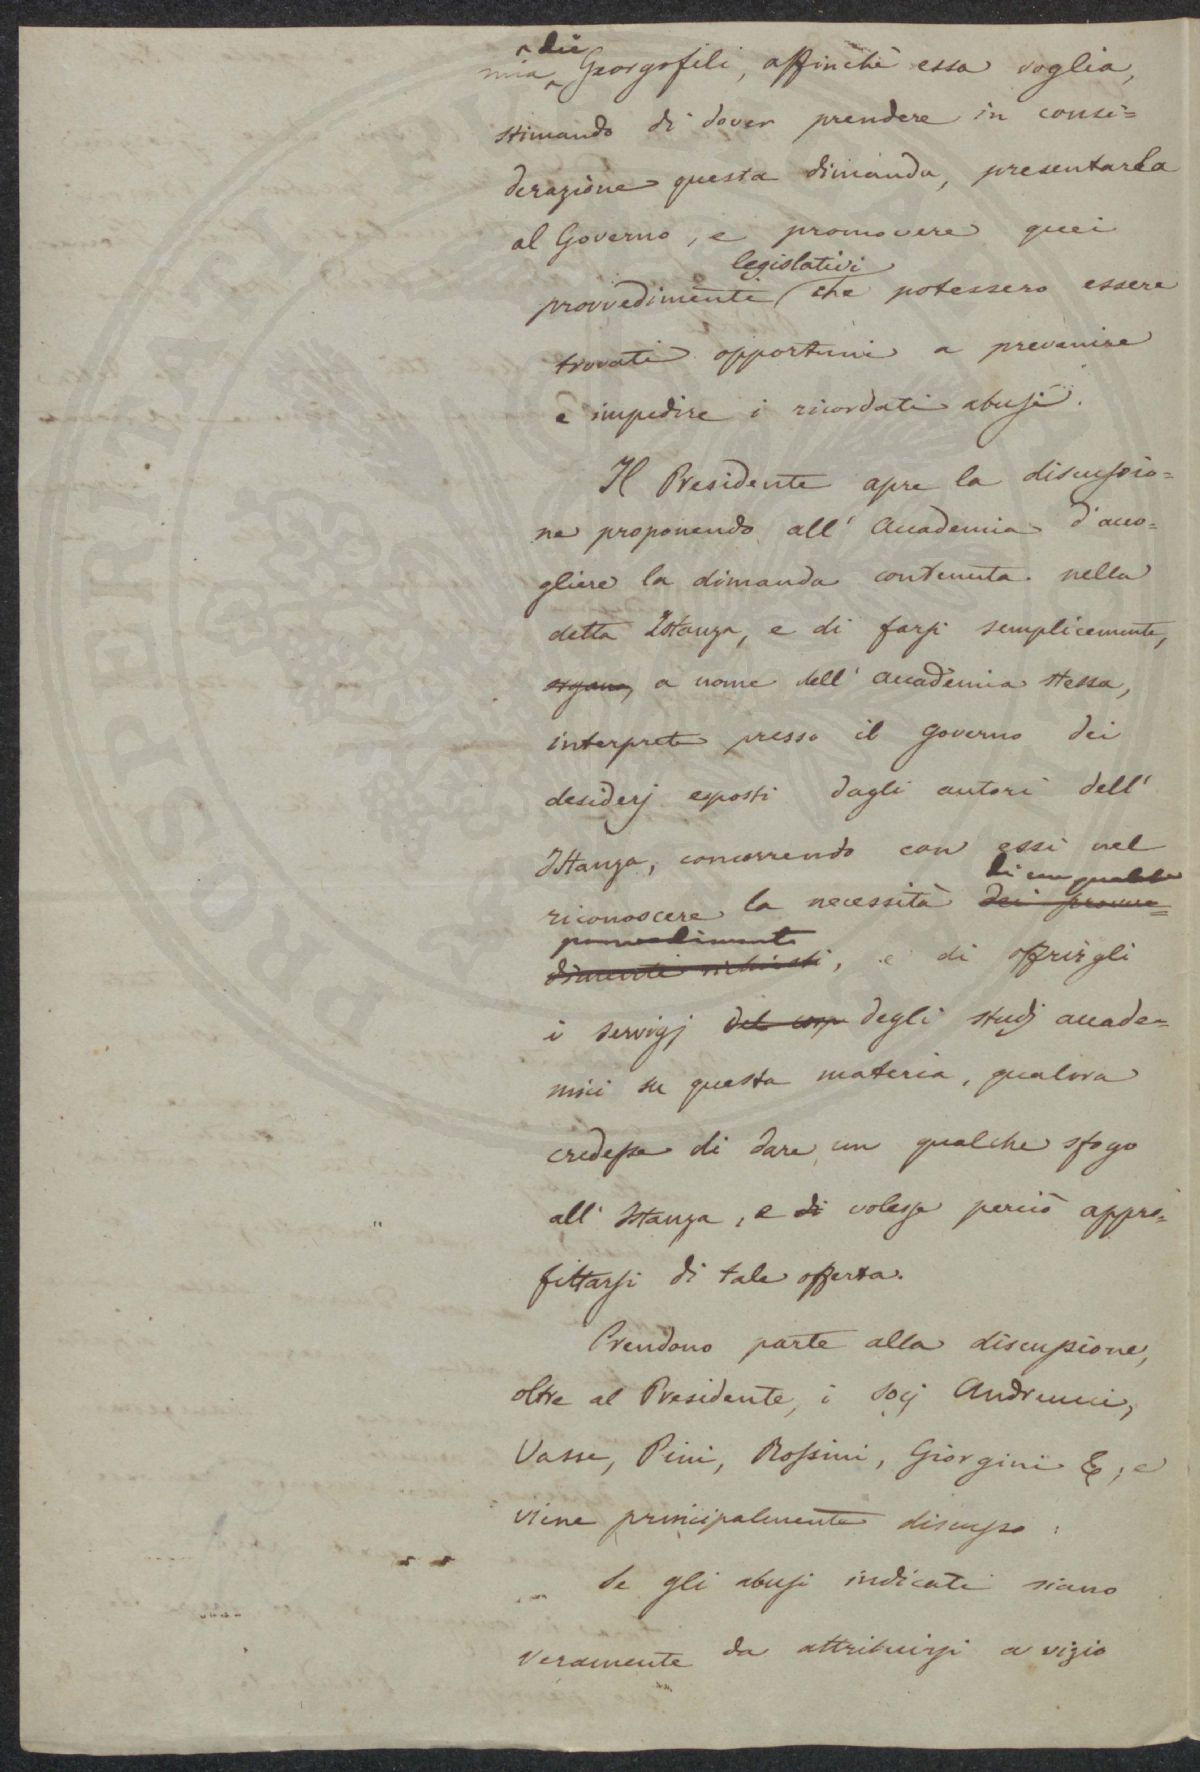 mia dei Georgofili, affinchè essa voglia,
stimando di dover prendere in consi=
derazione questa dimanda, presentarla
al Governo, e promovere quei
legislativi
provvedimenti che potessero essere
trovati opportuni a prevenire
e impedire i ricordati abusi.
Il Presidente apre la discussio=
ne proponendo all' Accademia d'acco=
gliere la dimanda contenuta nella
detta Istanza, e di farsi semplicemente,
organo, a nome dell' Accademia stessa,
interprete presso il Governo dei
desiderj esposti dagli autori dell'
Istanza, concorrendo con essi nel
di un qualche
riconoscere la necessità dei provve=
provvedimento
dimenti richiesti, e di offrirgli
i servigj del corp degli studj accade=
mici su questa materia, qualora
credesse di dare un qualche sfogo
all' Istanza, e di volesse perciò appro=
fittarsi di tale offerta.
Prendono parte alla discussione,
oltre al Presidente, i socj Andreucci,
Vasse, Pini, Rossini, Giorgini &, e
viene principalmente discusso:
Se gli abusi indicati siano
veramente da attribuirsi a vizio